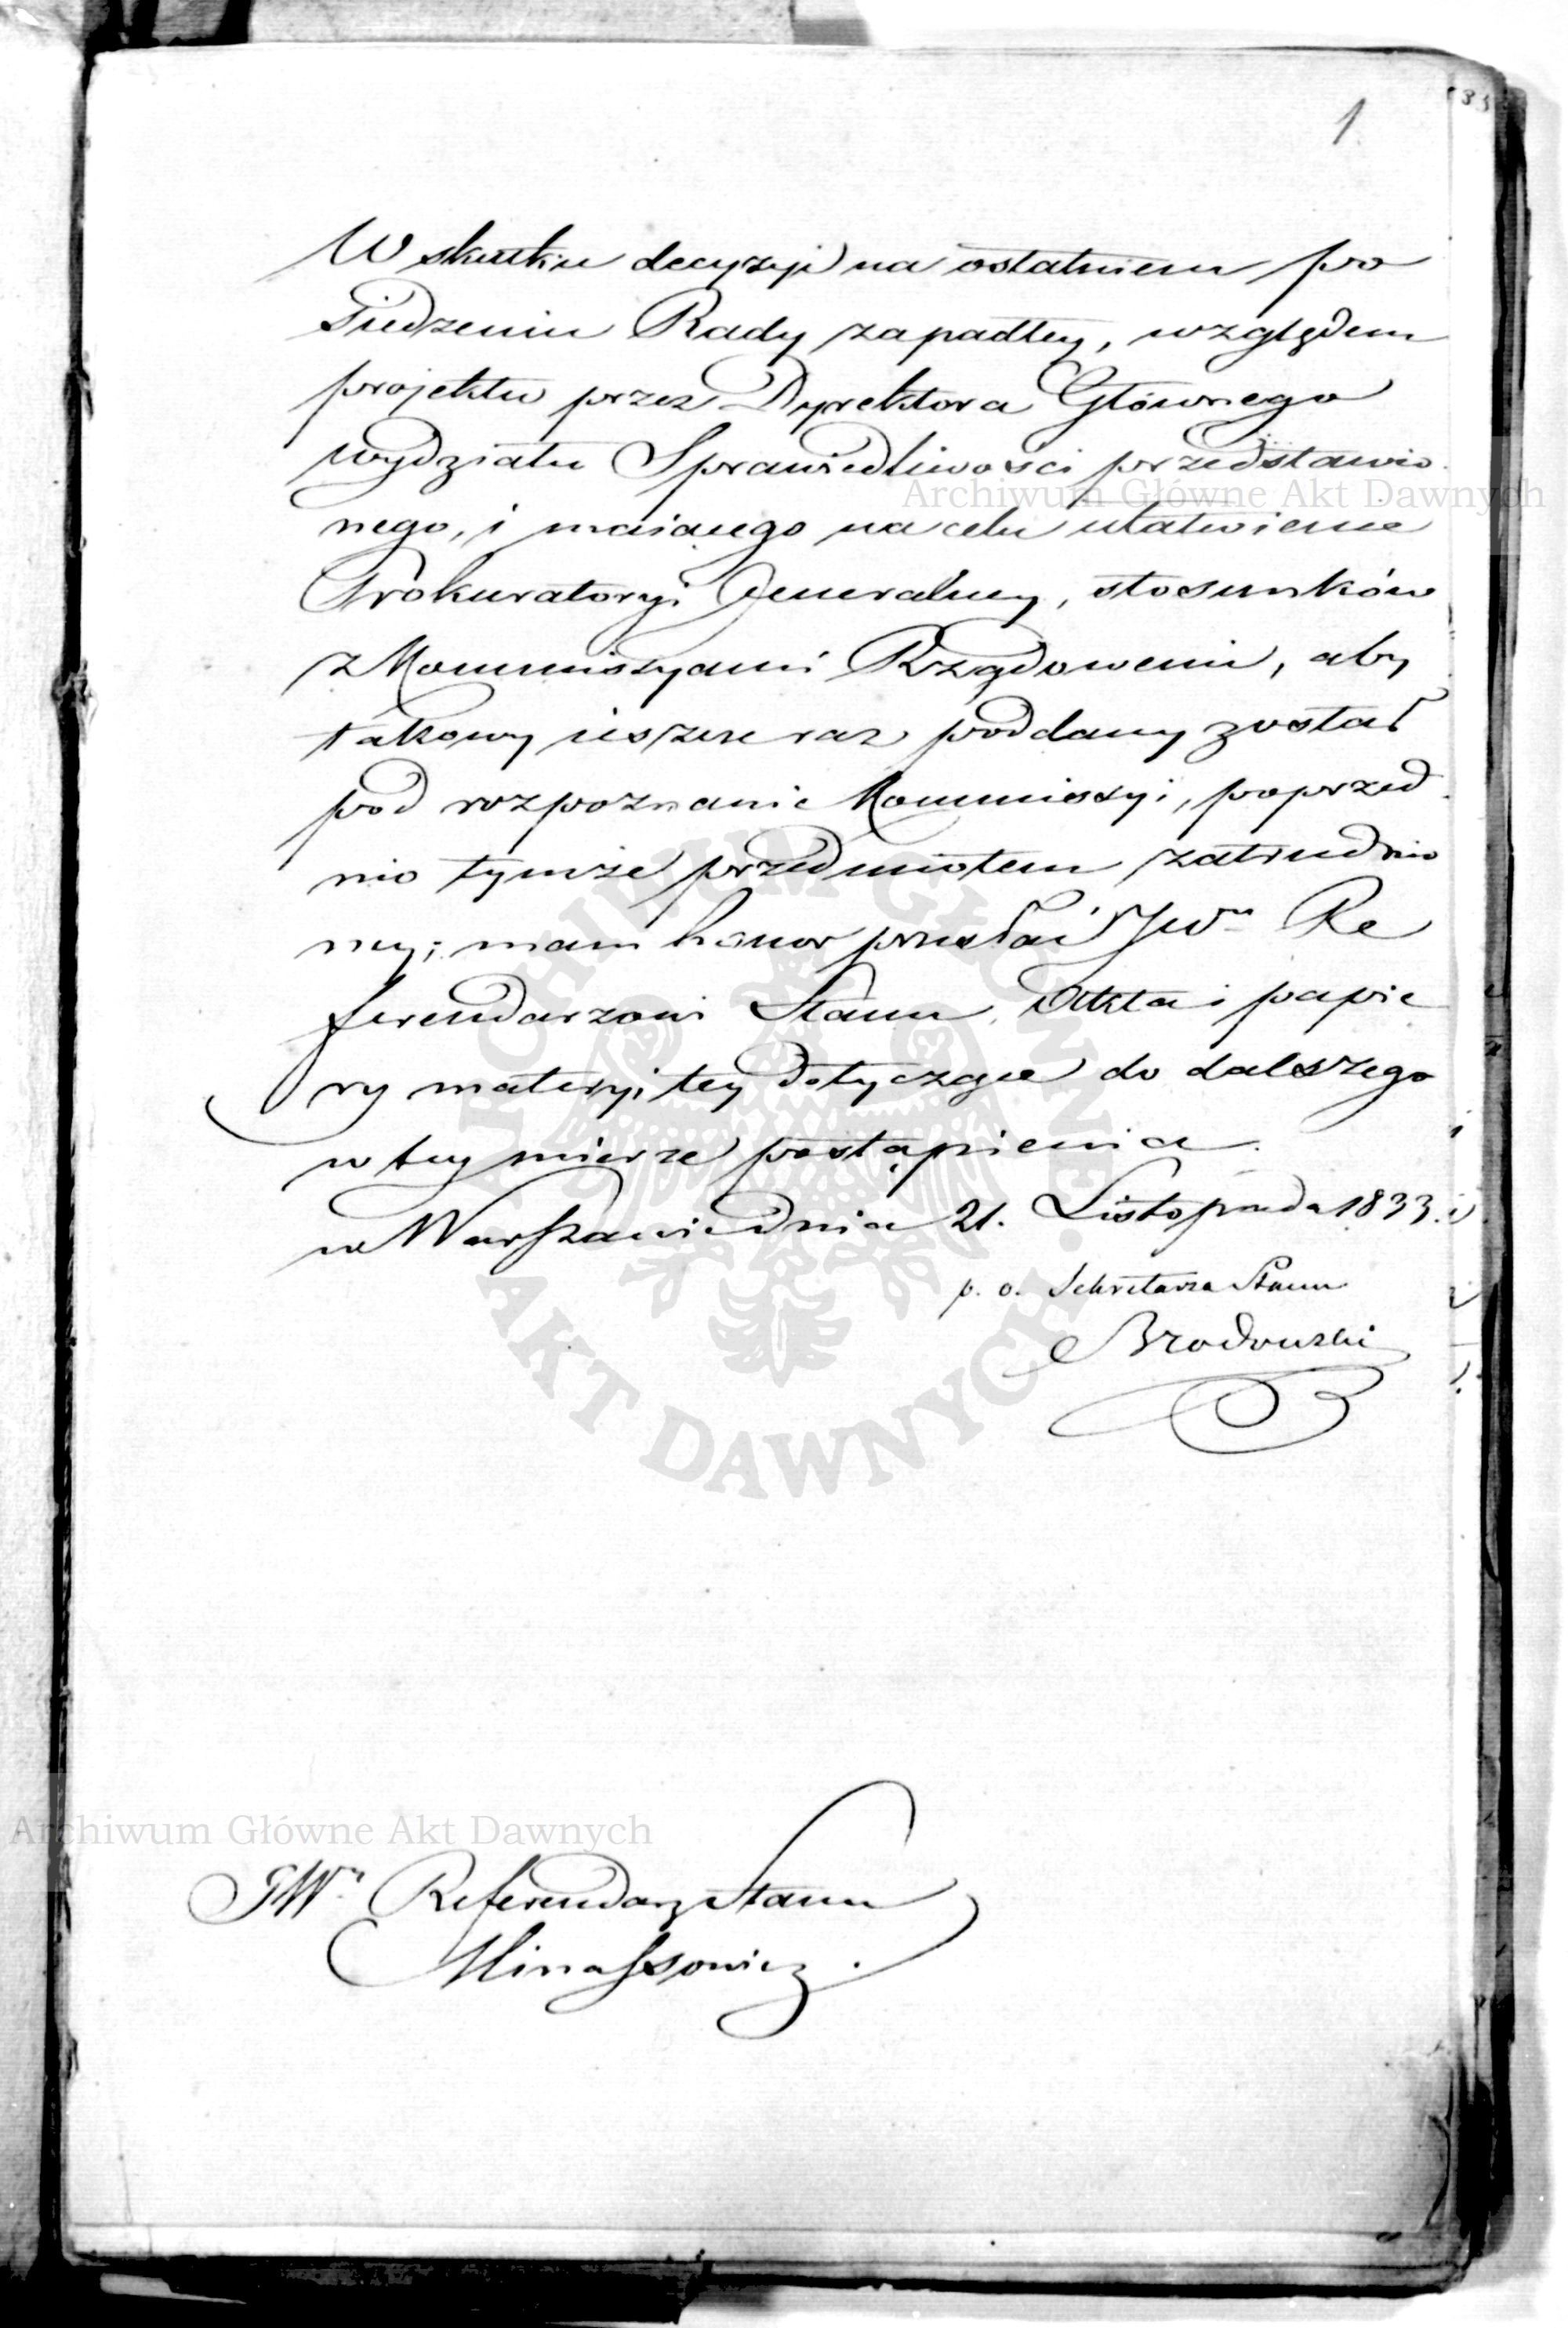 1
W skutku decyzyi na ostatniem po
siedzeniu Rady zapadłey, względem
projektu przez Dyrektora Głównego
wydziału Sprawiedliwości przedstawio
nego, i maiącego na celu ułatwienie
Prokuratoryi Jeneralney, stosunków
z Kommissyami Rządowemi, aby
takowy ieszcze raz poddany został
pod rozpoznanie Kommissyi, poprzed
nio tymże przedmiotem zatrudnio
ney; mam honor przesłać JWmu Re
ferendarzowi Stanu, Akta i papie
ry materyi tey dotyczące do dalszego
w tey mierze postąpienia.
w Warszawie dnia 21. Listopada 1833.
p. o. Sekretarza Stanu
Brodowski
JWny Referendarz Stanu
Minassowicz.
Archiwum Główne Akt Dawnych
Archiwum Główne Akt Dawnych
ARCHIWUM GŁÓWNE
AKT DAWNYCH